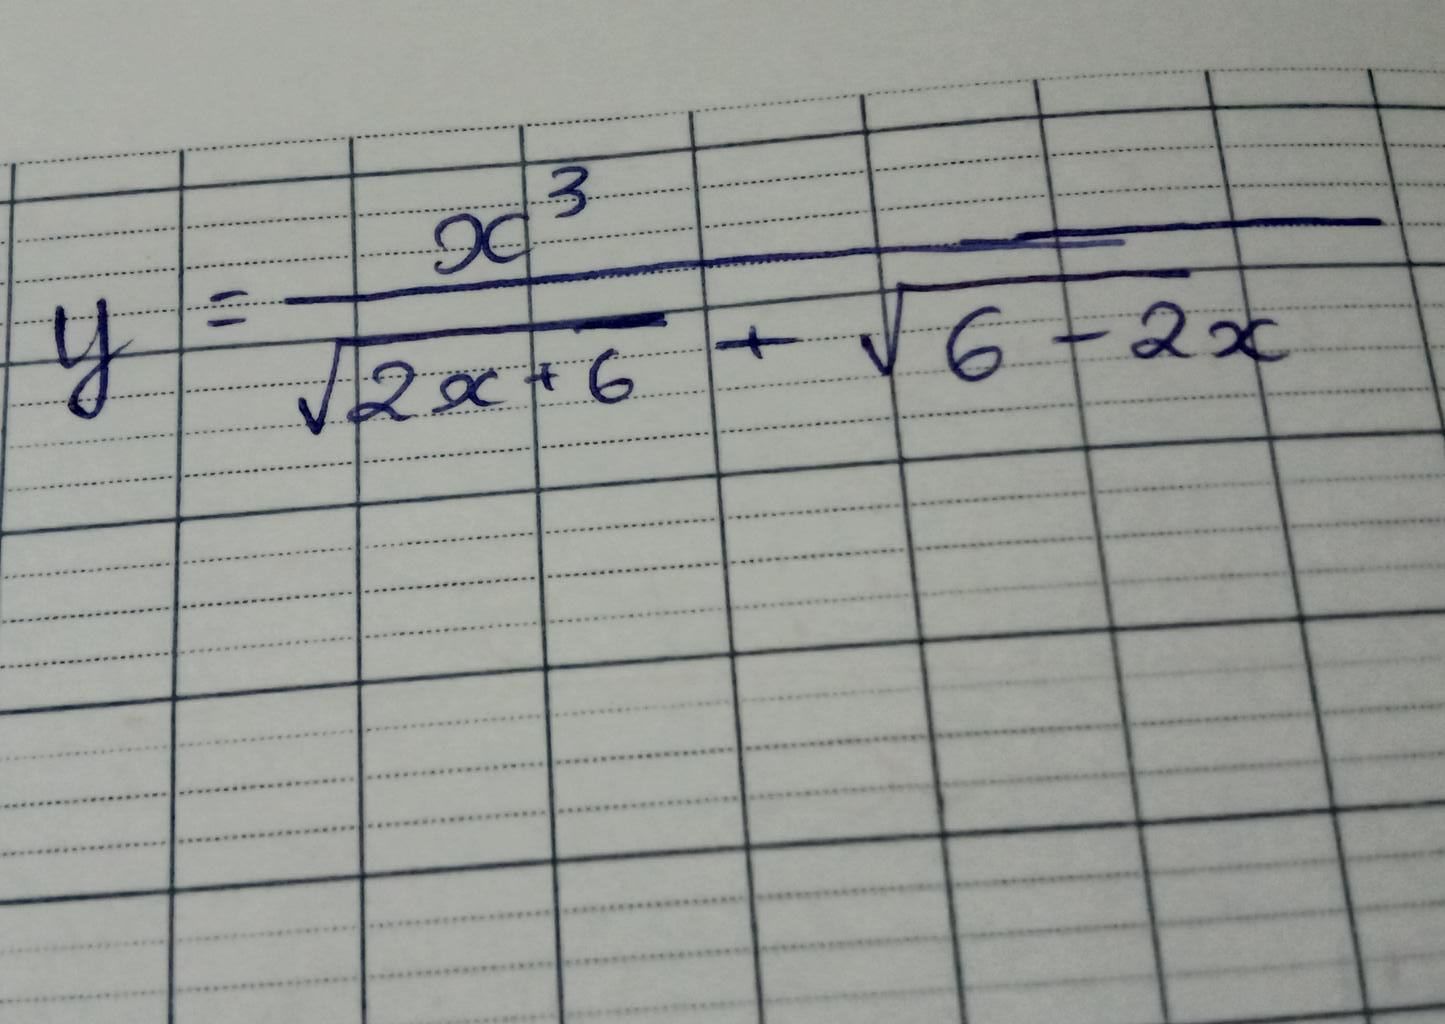 y = x³ / (√(2x+6) + √(6-2x))